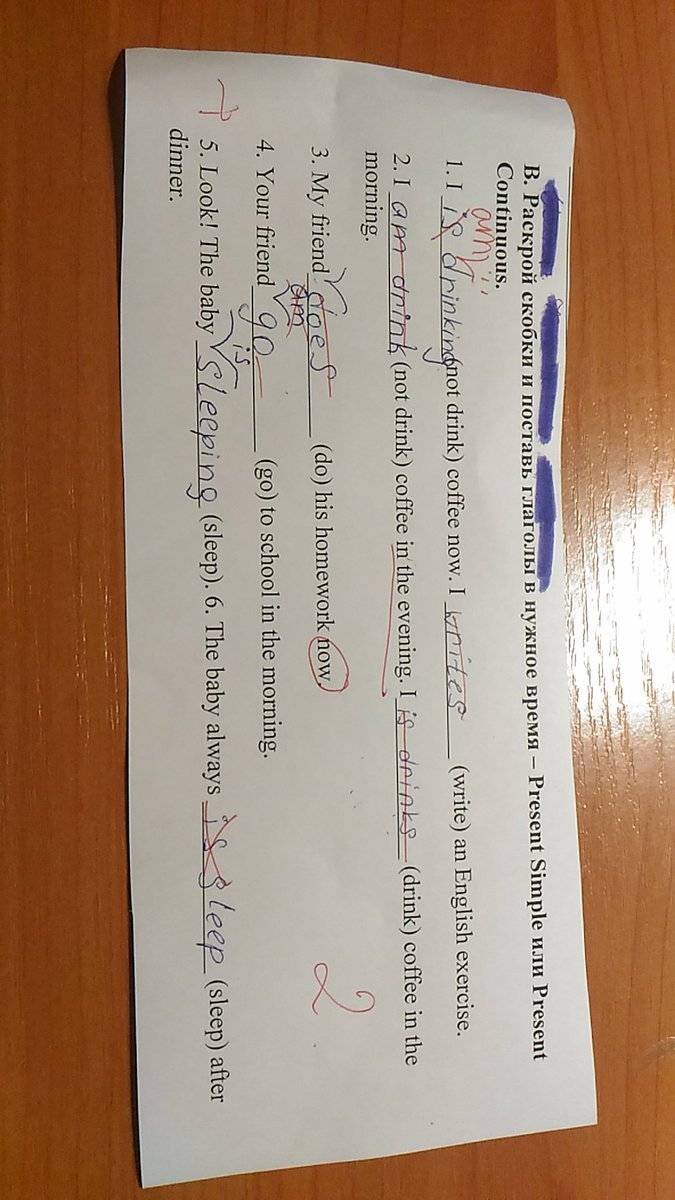 В. Раскрой скобки и поставь глаголы в нужное время – Present Simple или Present
Continuous.
am
1. I is drinking (not drink) coffee now. I writes (write) an English exercise.
2. I am drink (not drink) coffee in the evening. I is drinks (drink) coffee in the
morning.
3. My friend does (do) his homework now.
am
4. Your friend go (go) to school in the morning.
is
5. Look! The baby sleeping (sleep). 6. The baby always is sleep (sleep) after
dinner.
2